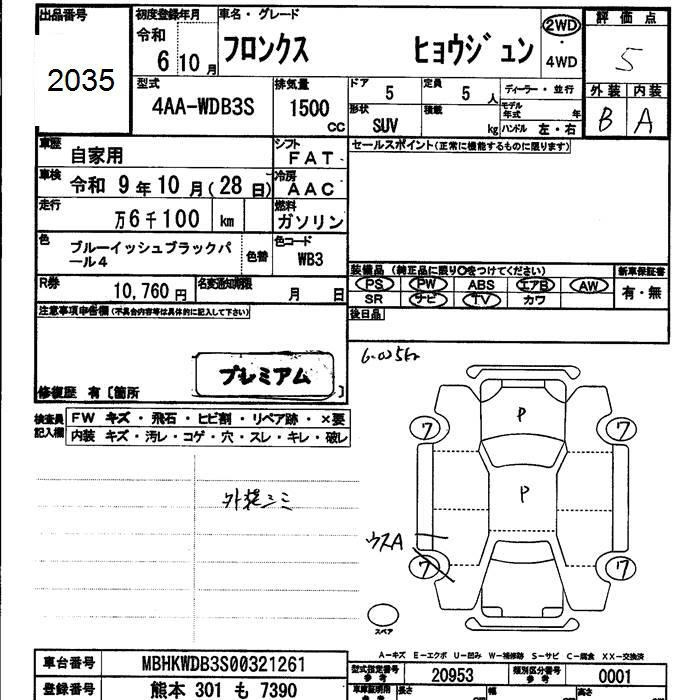 出品番号 初度登録年月 車名・グレード 2WD 評価点
2035 令和 6 10月 フロンクス ヒョウジュン ・ 4WD 5
型式 排気量 ドア 定員 ディーラー・並行 外装 内装
4AA-WDB3S 1500cc 5 5人 モデル年式 年 B A
形状 積載
SUV kg ハンドル 左・右
車歴 自家用 シフト FAT セールスポイント(正常に機能するものに限ります)
車検 令和 9年10月(28日) 冷房 AAC
走行 万6千100 km 燃料 ガソリン
色 ブルーイッシュブラックパール4 色替 色コード WB3
装備品 (純正品に限り○をつけてください) 新車保証書
R券 10,760円 名変通知期限 月 日 PS PW ABS エアB AW 有・無
SR ナビ TV カワ
注意事項申告欄(不具合内容等は具体的に記入して下さい) 後日品
プレミアム
修復歴 有〔箇所 〕
6.025km
検査員記入欄 FW キズ・飛石・ヒビ割・リペア跡・×要
内装 キズ・汚レ・コゲ・穴・スレ・キレ・破レ
外装ミミ
7 P 7
P
ウスA
7 7
スペア
A-キズ E-エクボ U-凹み W-補修跡 S-サビ C-腐食 XX-交換済
車台番号 MBHKWDB3S00321261 型式指定番号 参考 20953 類別区分番号 参考 0001
登録番号 熊本 301 も 7390 車庫証明用 参考 長さ cm 幅 cm 高さ cm